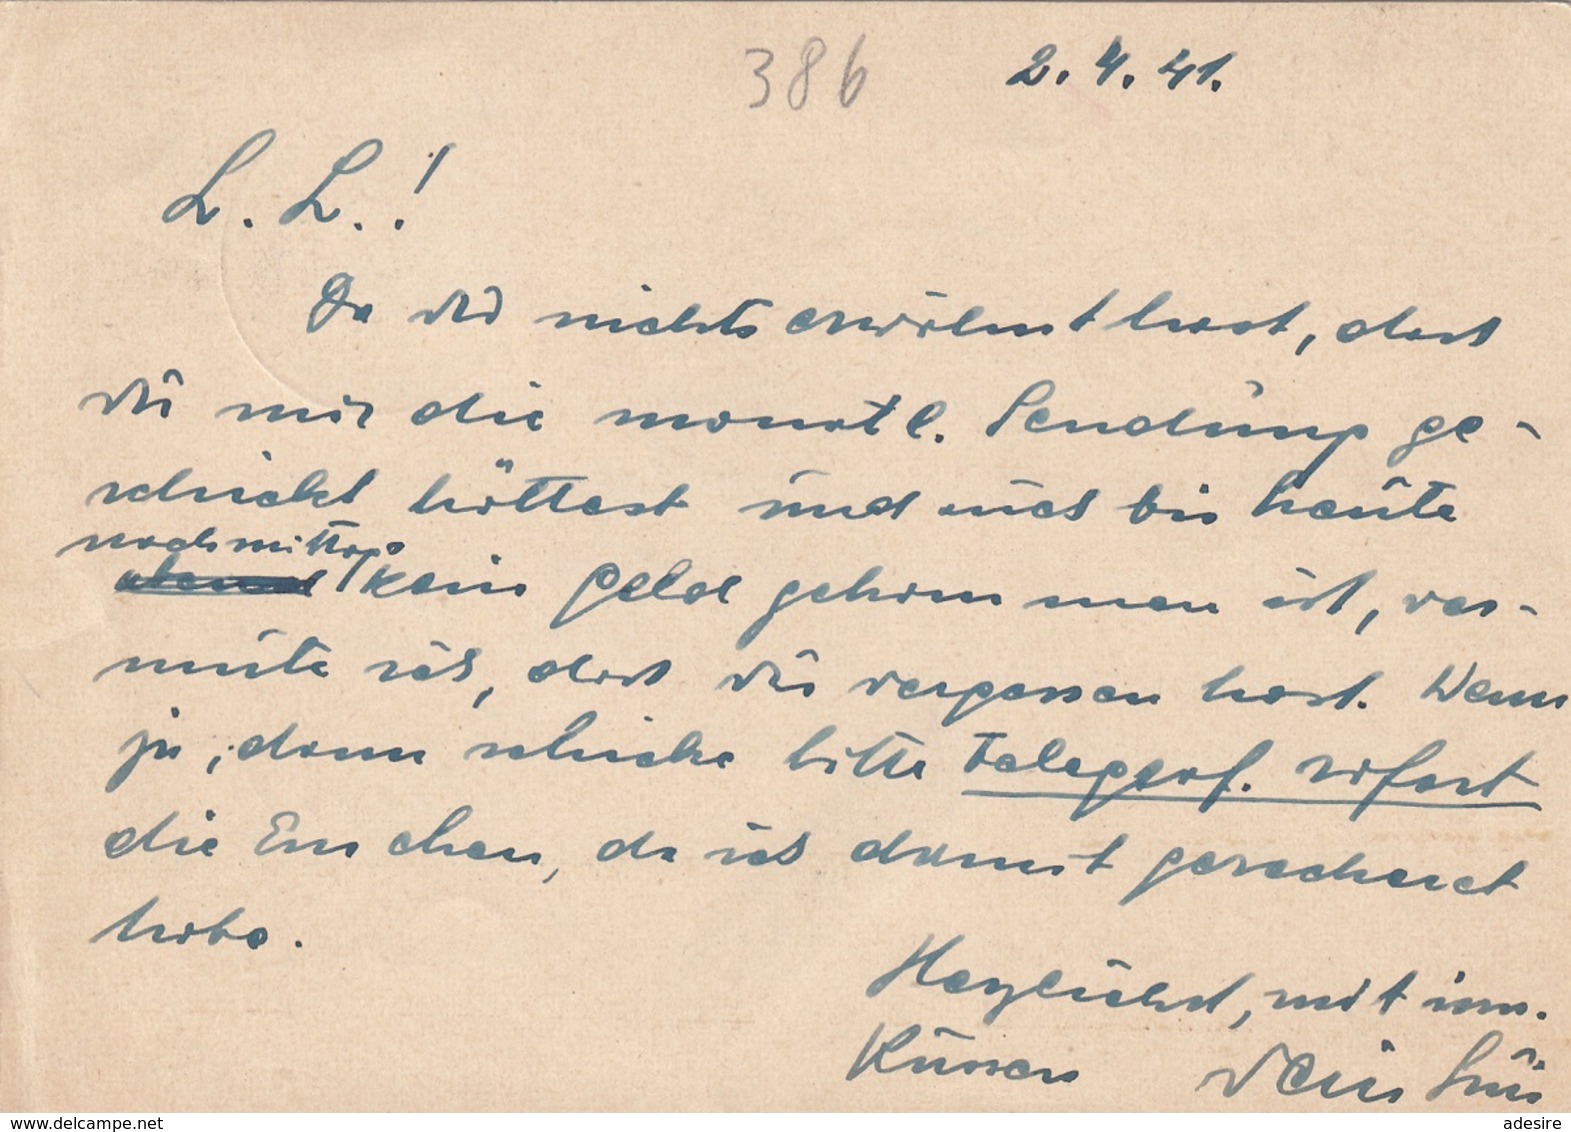 386
2. 4. 41.
L. L.!
Da Du nichts erwähnt hast, dass
Du mir die monatl. Sendung ge-
schickt hättest und auch bis heute
nachmittags
kein Geld gekommen ist, ver-
mute ich, dass Du vergessen hast. Wenn
ja, dann schicke bitte telegraf. sofort
die, da ich damit gerechnet
habe.
Herzlichst, mit inn.
Küssen Dein
www.delcampe.net
adesire